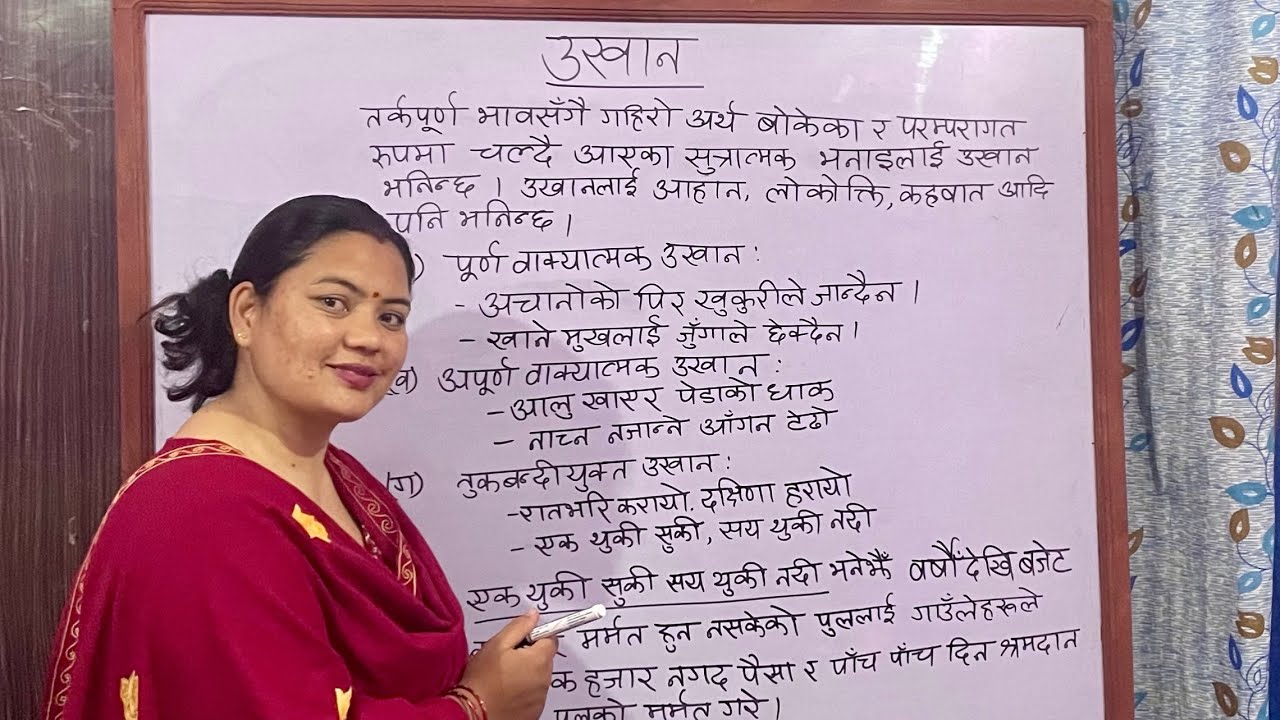 उखान
तर्कपूर्ण भावसँगै गहिरो अर्थ बोकेका र परम्परागत
रुपमा चल्दै आएका सुत्रात्मक भनाइलाई उखान
भनिन्छ । उखानलाई आहान, लोकोक्ति, कहबात आदि
पनि भनिन्छ ।
) पूर्ण वाक्यात्मक उखान :
- अचानोको पिर खुकुरीले जान्दैन ।
- खाने मुखलाई जुँगाले छेक्दैन ।
ख) अपूर्ण वाक्यात्मक उखान :
- आलु खाएर पेडाको धाक
- नाच्न नजान्ने आँगन टेढो
(ग) तुकबन्दीयुक्त उखान :
- रातभरि करायो. दक्षिणा हरायो
- एक थुकी सुकी, सय थुकी नदी
एक थुकी सुकी सय थुकी नदी भनेझैँ वर्षौंदेखि बजेट
मर्मत हुन नसकेको पुललाई गाउँलेहरूले
क हजार नगद पैसा र पाँच पाँच दिन श्रमदान
पुलको मर्मत गरे ।